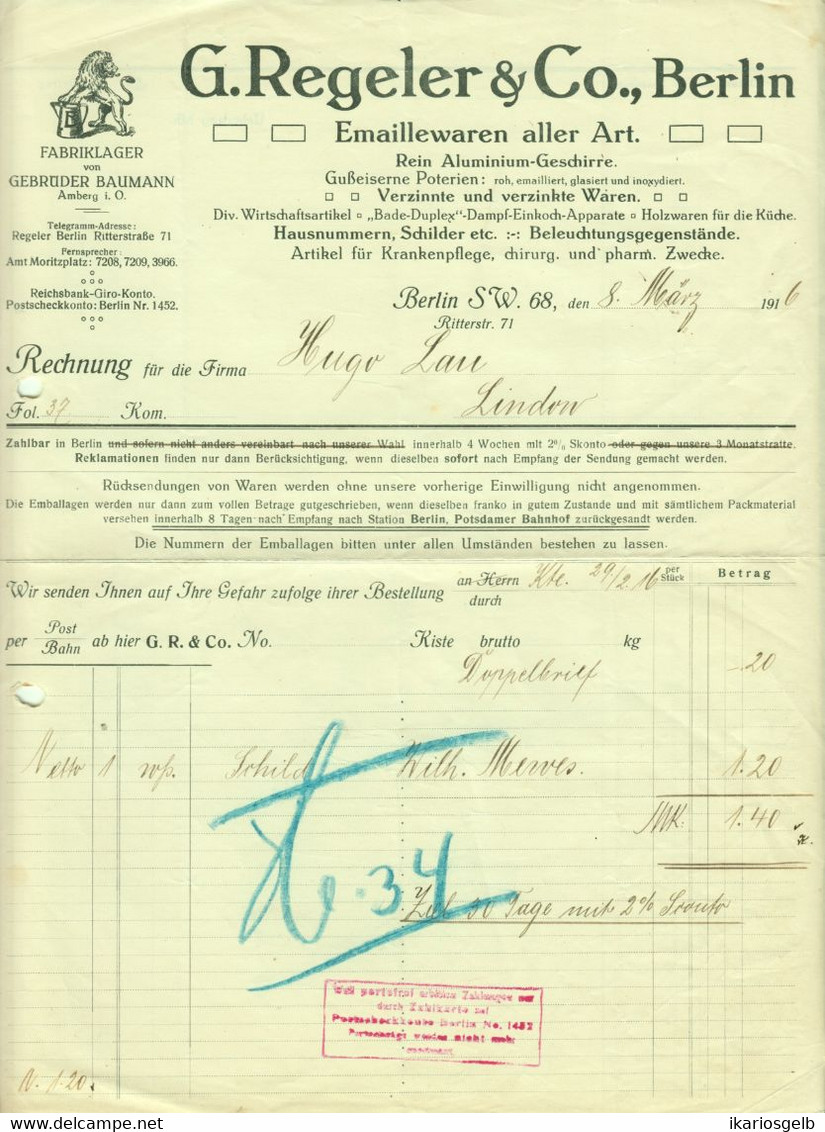 G. Regeler & Co., Berlin
Emaillewaren aller Art.
Rein Aluminium-Geschirre.
Gußeiserne Poterien: roh, emailliert, glasiert und inoxydiert.
Verzinnte und verzinkte Waren.
Div. Wirtschaftsartikel „Bade-Duplex“-Dampf-Einkoch-Apparate Holzwaren für die Küche.
Hausnummern, Schilder etc. :-: Beleuchtungsgegenstände.
Artikel für Krankenpflege, chirurg. und pharm. Zwecke.
FABRIKLAGER
von
GEBRÜDER BAUMANN
Amberg i. O.
Telegramm-Adresse:
Regeler Berlin Ritterstraße 71
Fernsprecher:
Amt Moritzplatz: 7208, 7209, 3966.
Reichsbank-Giro-Konto.
Postscheckkonto: Berlin Nr. 1452.
Berlin SW. 68, den 8. März 1916
Ritterstr. 71
Rechnung für die Firma Hugo Lau
Fol. 37 Kom. Lindow
Zahlbar in Berlin und sofern nicht anders vereinbart nach unserer Wahl innerhalb 4 Wochen mit 2% Skonto oder gegen unsere 3 Monatstratte.
Reklamationen finden nur dann Berücksichtigung, wenn dieselben sofort nach Empfang der Sendung gemacht werden.
Rücksendungen von Waren werden ohne unsere vorherige Einwilligung nicht angenommen.
Die Emballagen werden nur dann zum vollen Betrage gutgeschrieben, wenn dieselben franko in gutem Zustande und mit sämtlichem Packmaterial
versehen innerhalb 8 Tagen nach Empfang nach Station Berlin, Potsdamer Bahnhof zurückgesandt werden.
Die Nummern der Emballagen bitten unter allen Umständen bestehen zu lassen.
Wir senden Ihnen auf Ihre Gefahr zufolge ihrer Bestellung an Herrn durch Kte. 29/2.16 per Stück Betrag
per Post Bahn ab hier G. R. & Co. No. Kiste brutto kg
Doppelbrief -.20
Netto 1 Schild Wilh. Mewes. 1.20
MK. 1.40
34
Ziel 30 Tage mit 2% Sconto
durch Zahlkarte auf
Postscheckkonto Berlin No. 1452
N. 1.20.
ikariosgelb